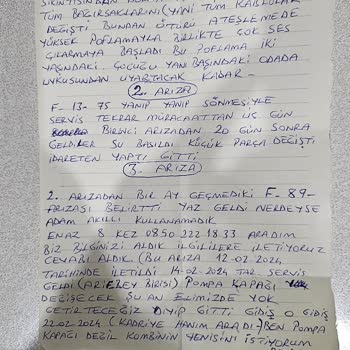 TÜM BAĞIRSAKLARINI (YANİ TÜM KABLOLAR
DEĞİŞTİ BUNDAN ÖTÜRÜ ATEŞLEMEDE
YÜKSEK POFLAMAYLA BİRLİKTE ÇOK SES
ÇIKARMAYA BAŞLADI BU POFLAMA İKİ
YAŞINDAKİ ÇOCUĞU YAN BAŞINDAKİ ODADA
UYKUSUNDAN UYARTACAK KADAR -
2. ARIZA
F-13-75 YANIP YANIP SÖNMESİYLE
SERVİS TEKRAR MÜRACAATTAN ÜÇ GÜN
BİRİNCİ ARIZADAN 20 GÜN SONRA
GELDİLER SU BASILDI KÜÇÜK PARÇA DEĞİŞTİ
İDARETEN YAPTI GİTTİ
3. ARIZA
2. ARIZADAN BİR AY GEÇMEDİKİ F-89-
ARIZASI BELİRTTİ YAZ GELDİ NERDEYSE
ADAM AKILLI KULLANAMADIK
ENAZ 8 KEZ 0850.222 18 33 ARADIM
BİZ BİLGİNİZİ ALDIK İLGİLİLERE İLETİYORUZ
CEVABI ALDIK. (BU ARIZA 12.02.2024
TARİHİNDE İLETİLDİ 14.02.2024 TAR. SERVİS
GELDİ (ARİEREY BİRİSİ) POMPA KAPAĞI
DEĞİŞECEK ŞU AN ELİMİZDE YOK
GETİRTECEĞİZ DİYİP GİTTİ GİDİŞ O GİDİŞ
22.02.2024 (KADRİYE HANIM ARADI) BEN POMPA
KAPAĞI DEĞİL KOMBİNİN YENİSİNİ İSTİYORUM